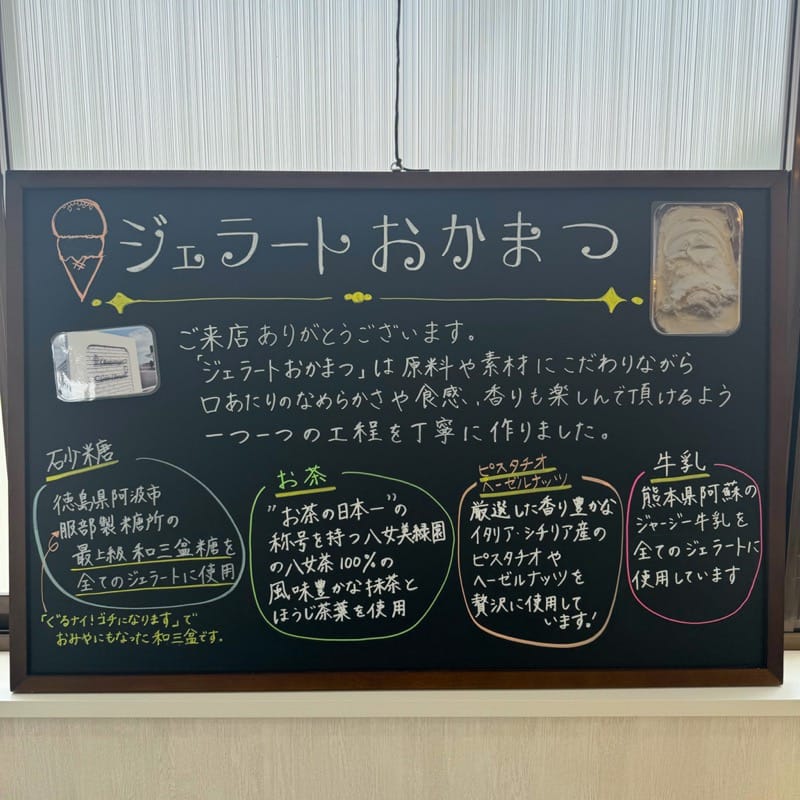 ジェラートおかまつ
ご来店ありがとうございます。
「ジェラートおかまつ」は原料や素材にこだわりながら
口あたりのなめらかさや食感、香りも楽しんで頂けるよう
一つ一つの工程を丁寧に作りました。
砂糖
徳島県阿波市
服部製糖所の
最上級和三盆糖を
全てのジェラートに使用
「ぐるナイ!ゴチになります」で
おみやにもなった和三盆です。
お茶
"お茶の日本一"の
称号を持つ八女美緑園
の八女茶100%の
風味豊かな抹茶と
ほうじ茶葉を使用
ピスタチオ
ヘーゼルナッツ
厳選した香り豊かな
イタリア・シチリア産の
ピスタチオや
ヘーゼルナッツを
贅沢に使用して
います!
牛乳
熊本県阿蘇の
ジャージー牛乳を
全てのジェラートに
使用しています